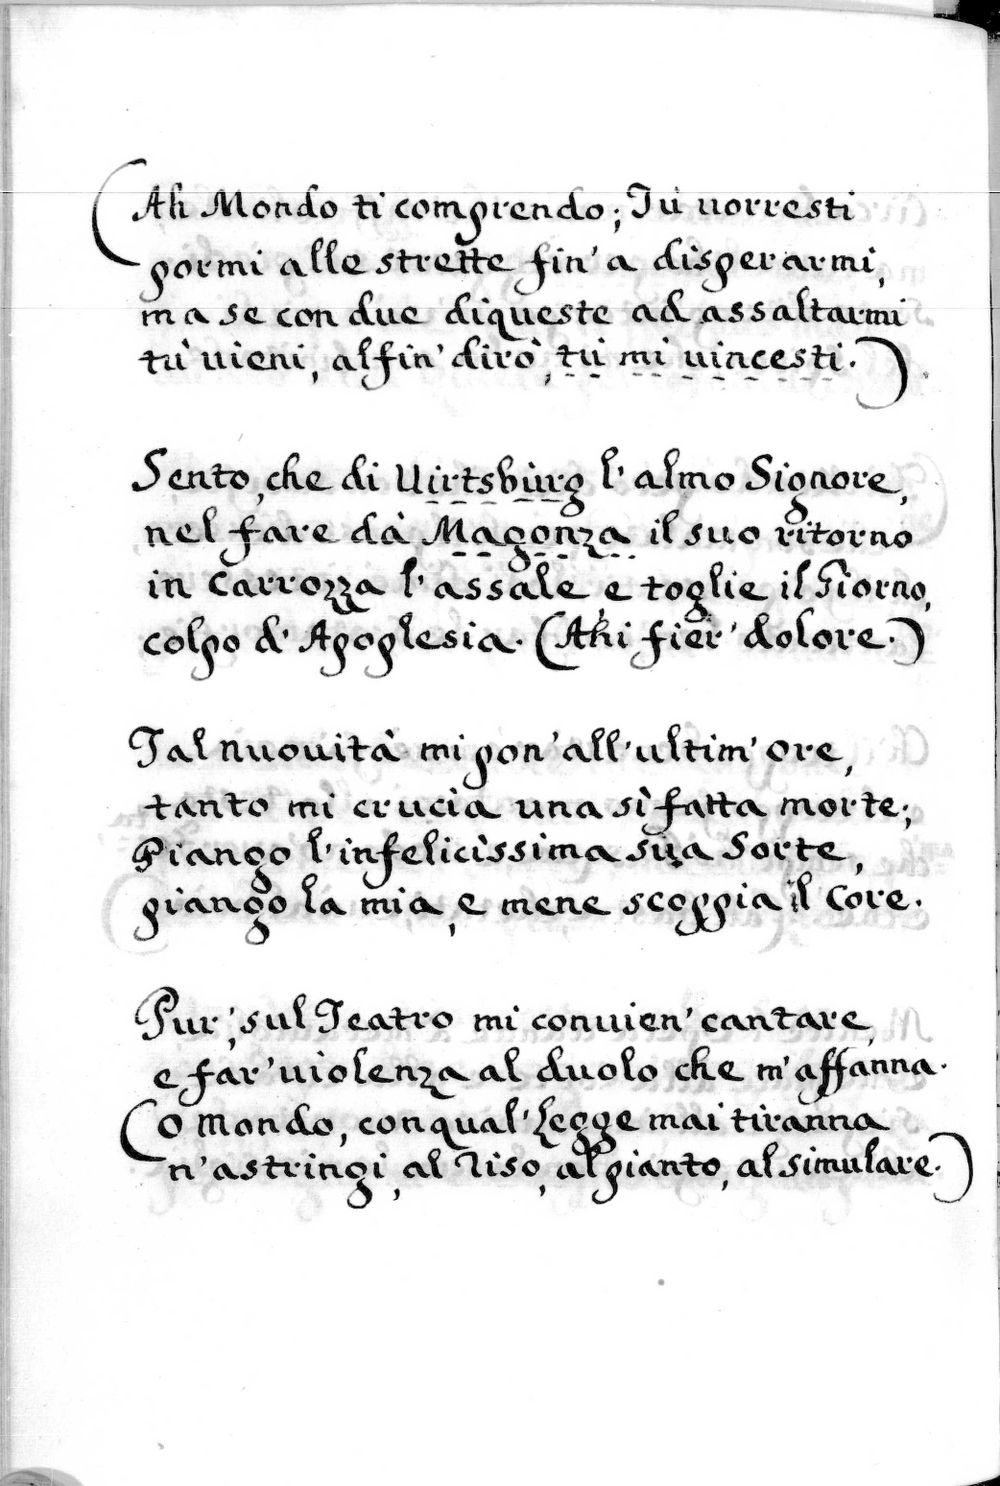 (Ah Mondo ti comprendo; Tù uorresti
pormi alle strette fin' a disperarmi,
ma se con due di queste ad assaltarmi
tù uieni, alfin' dirò, tù mi uincesti.)
Sento, che di Uirtsbùrg l'almo Signore,
nel fare dà Magonza il suo ritorno
in Carrozza l'assale e toglie il Giorno,
colpo d'Apoplesia. (Ahi fier' dolore.)
Tal nuouità mi pon' all'ultim' ore,
tanto mi crucia una sì fatta morte;
Piango l'infelicissima sua Sorte,
piango la mia, e mene scoppia il Core.
Pur', sul Teatro mi conuien' cantare,
e far' uiolenza al duolo che m'affanna.
(O Mondo, con qual' Legge mai tiranna
n'astringi, al riso, al pianto, al simulare.)